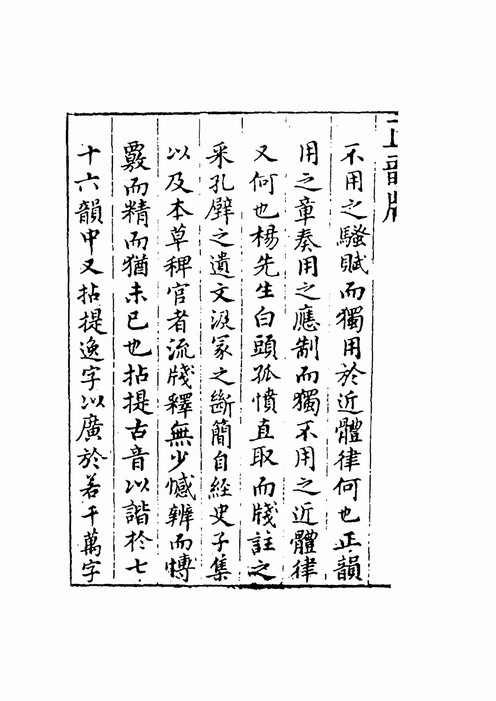 正韻牋
不用之騷賦而獨用於近體律何也正韻
用之章奏用之應制而獨不用之近體律
又何也楊先生白頭孤憤直取而牋註之
采孔壁之遺文汲冢之斷簡自經史子集
以及本草稗官者流牋釋無少憾辨而博
覈而精而猶未已也拈提古音以諧於七
十六韻中又拈提逸字以廣於若干萬字